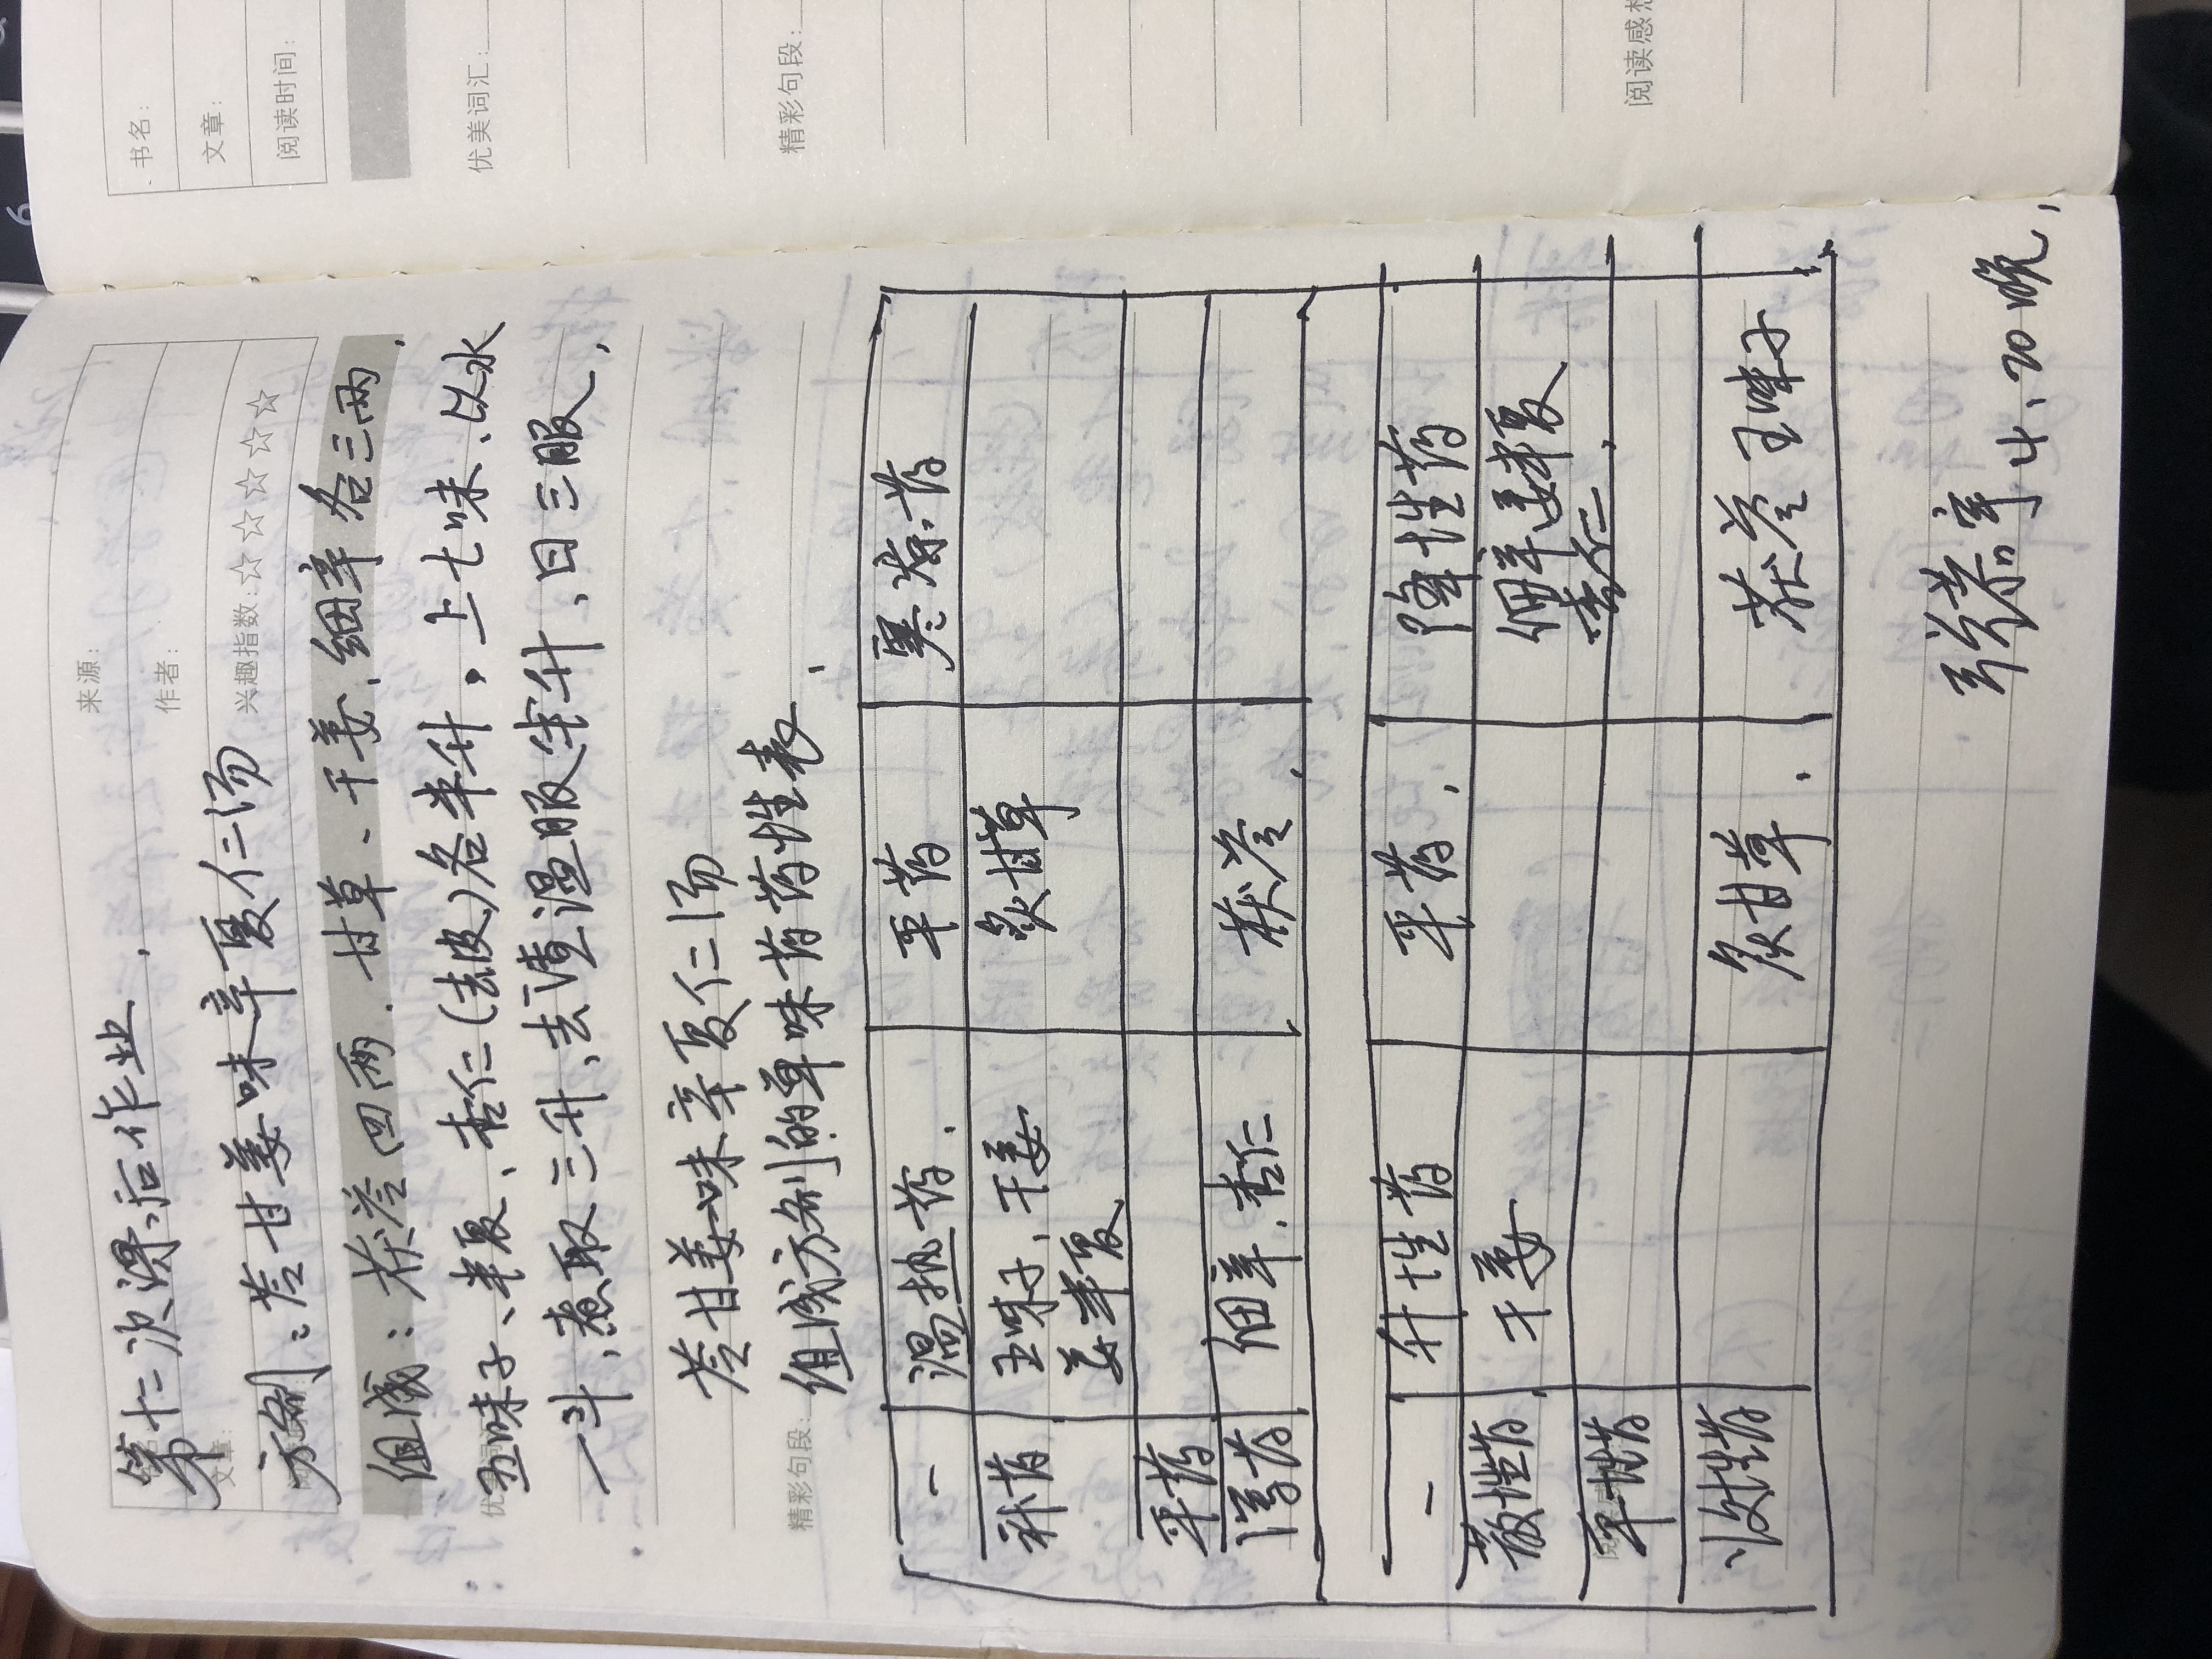 第十二次课后作业.
方剂:苓甘姜味辛夏仁汤
组成:茯苓四两.甘草、干姜、细辛各三两.
五味子、半夏、杏仁(去皮)各半升,上七味、以水
一斗,煮取三升、去渣温服半升、日三服,
苓甘姜味辛夏仁汤
组成方剂的单味药药性表
- 温热药. 平药 寒凉药
补药 五味子、干姜 炙甘草
姜半夏
平药
泻药 细辛、杏仁 茯苓
- 升性药 平药. 降性药
散性药 干姜 细辛 姜半夏
杏仁
平性药
收性药 炙甘草. 茯苓 五味子
4、20晚,
来源:
作者:
兴趣指数:☆☆☆☆☆
文章:
精彩句段:
书名:
文章:
阅读时间:
优美词汇:
精彩句段:
阅读感想
6